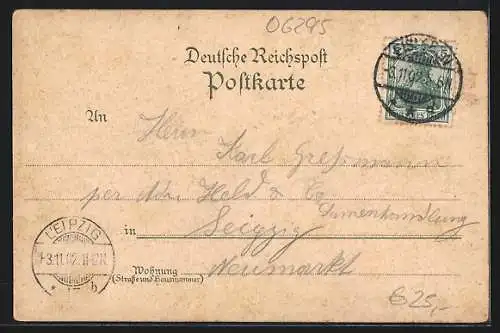 06295
Deutsche Reichspost
Postkarte
-3.11.02
An
Herrn
Karl Gressmann
per Adr. Held & Co
Samenhandlung
in Leipzig
Neumarkt
Wohnung
(Straße und Hausnummer)
LEIPZIG
-3.11.02
* 1- b
625,-